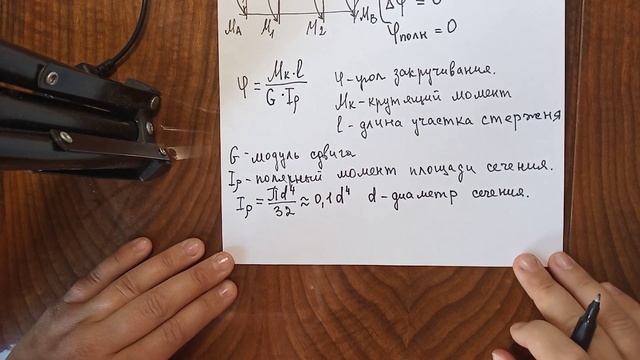 M_A M_1 M_2 M_B Δφ = 0
φполн = 0
φ = Mк·l / G·Iρ φ-угол закручивания.
Mк-крутящий момент
l-длина участка стержня
G-модуль сдвига
Iρ-полярный момент площади сечения.
Iρ = Πd⁴/32 ≈ 0,1d⁴ d-диаметр сечения.